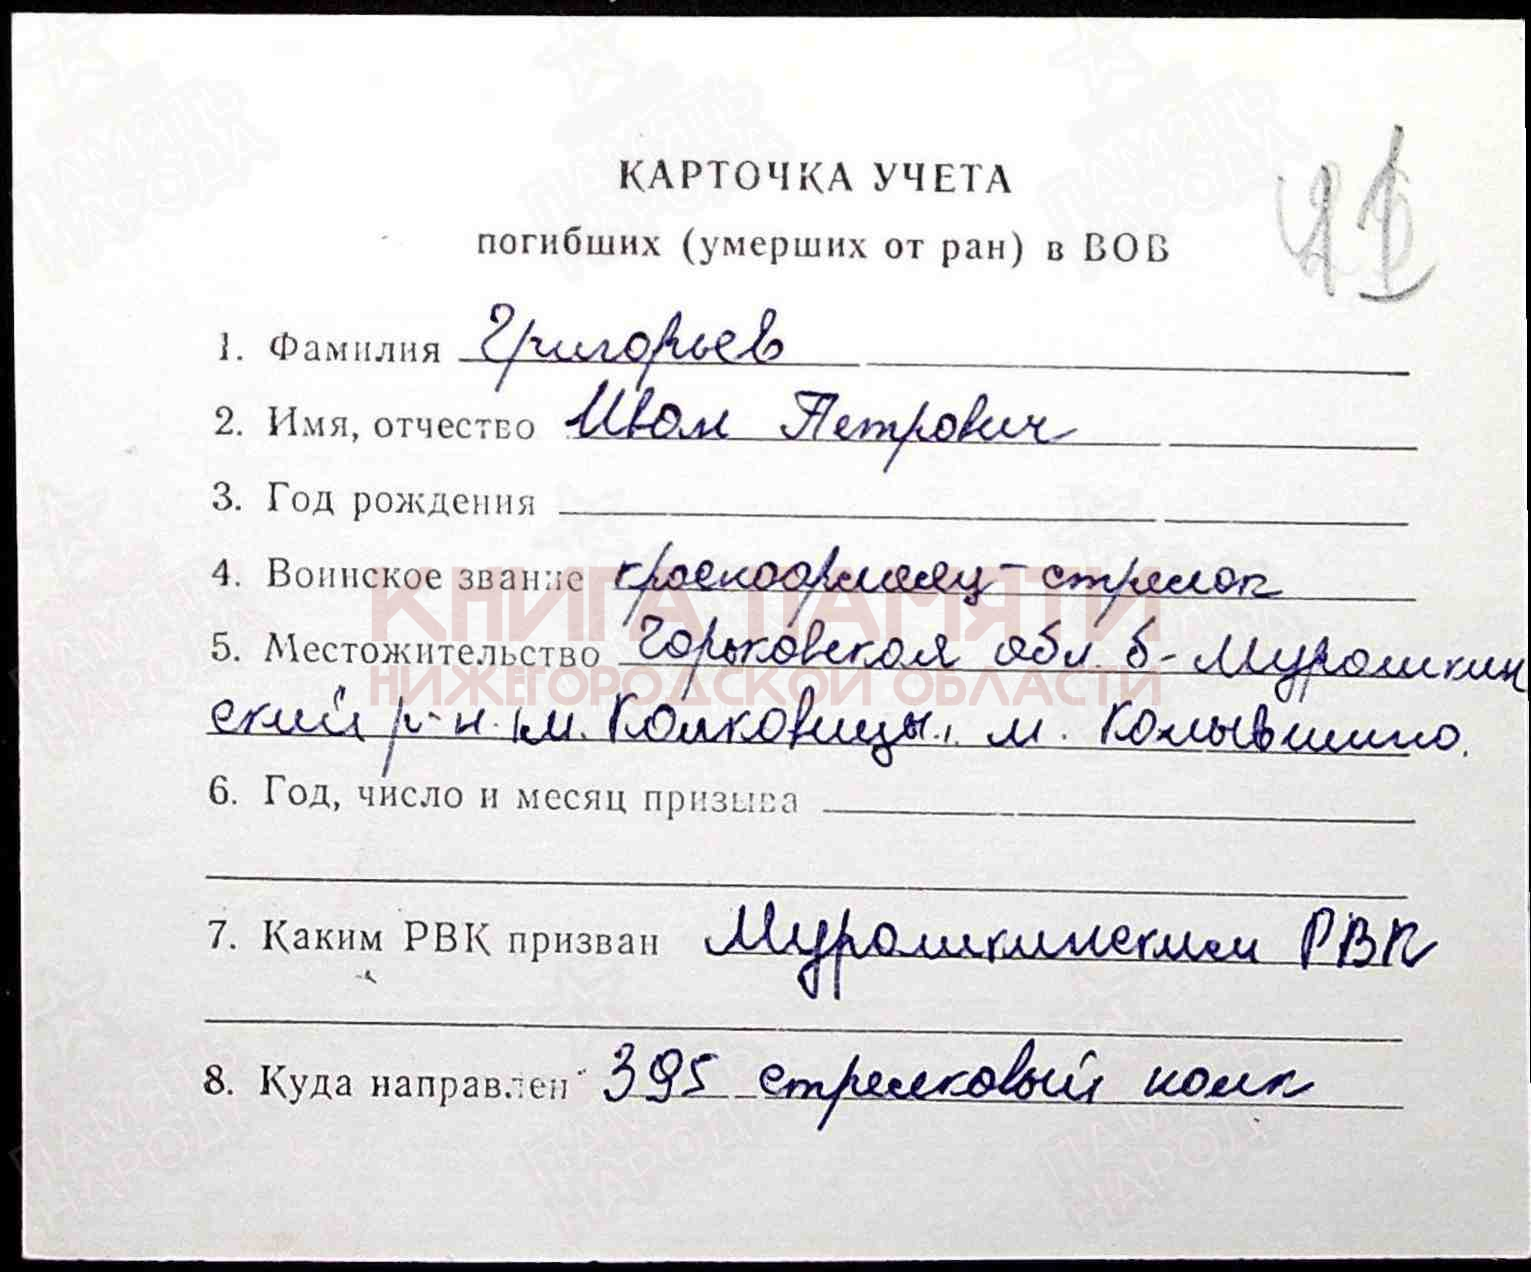 КАРТОЧКА УЧЕТА
погибших (умерших от ран) в ВОВ
1. Фамилия Григорьев
2. Имя, отчество Иван Петрович
3. Год рождения
4. Воинское звание красноармеец-стрелок
КНИГА ПАМЯТИ
5. Местожительство Горьковская обл. б-Мурашкин
НИЖЕГОРОДСКОЙ ОБЛАСТИ
ский р-н.
6. Год, число и месяц призыва
7. Каким РВК призван Мурашкинским РВК
8. Куда направлен 395 стрелковый полк